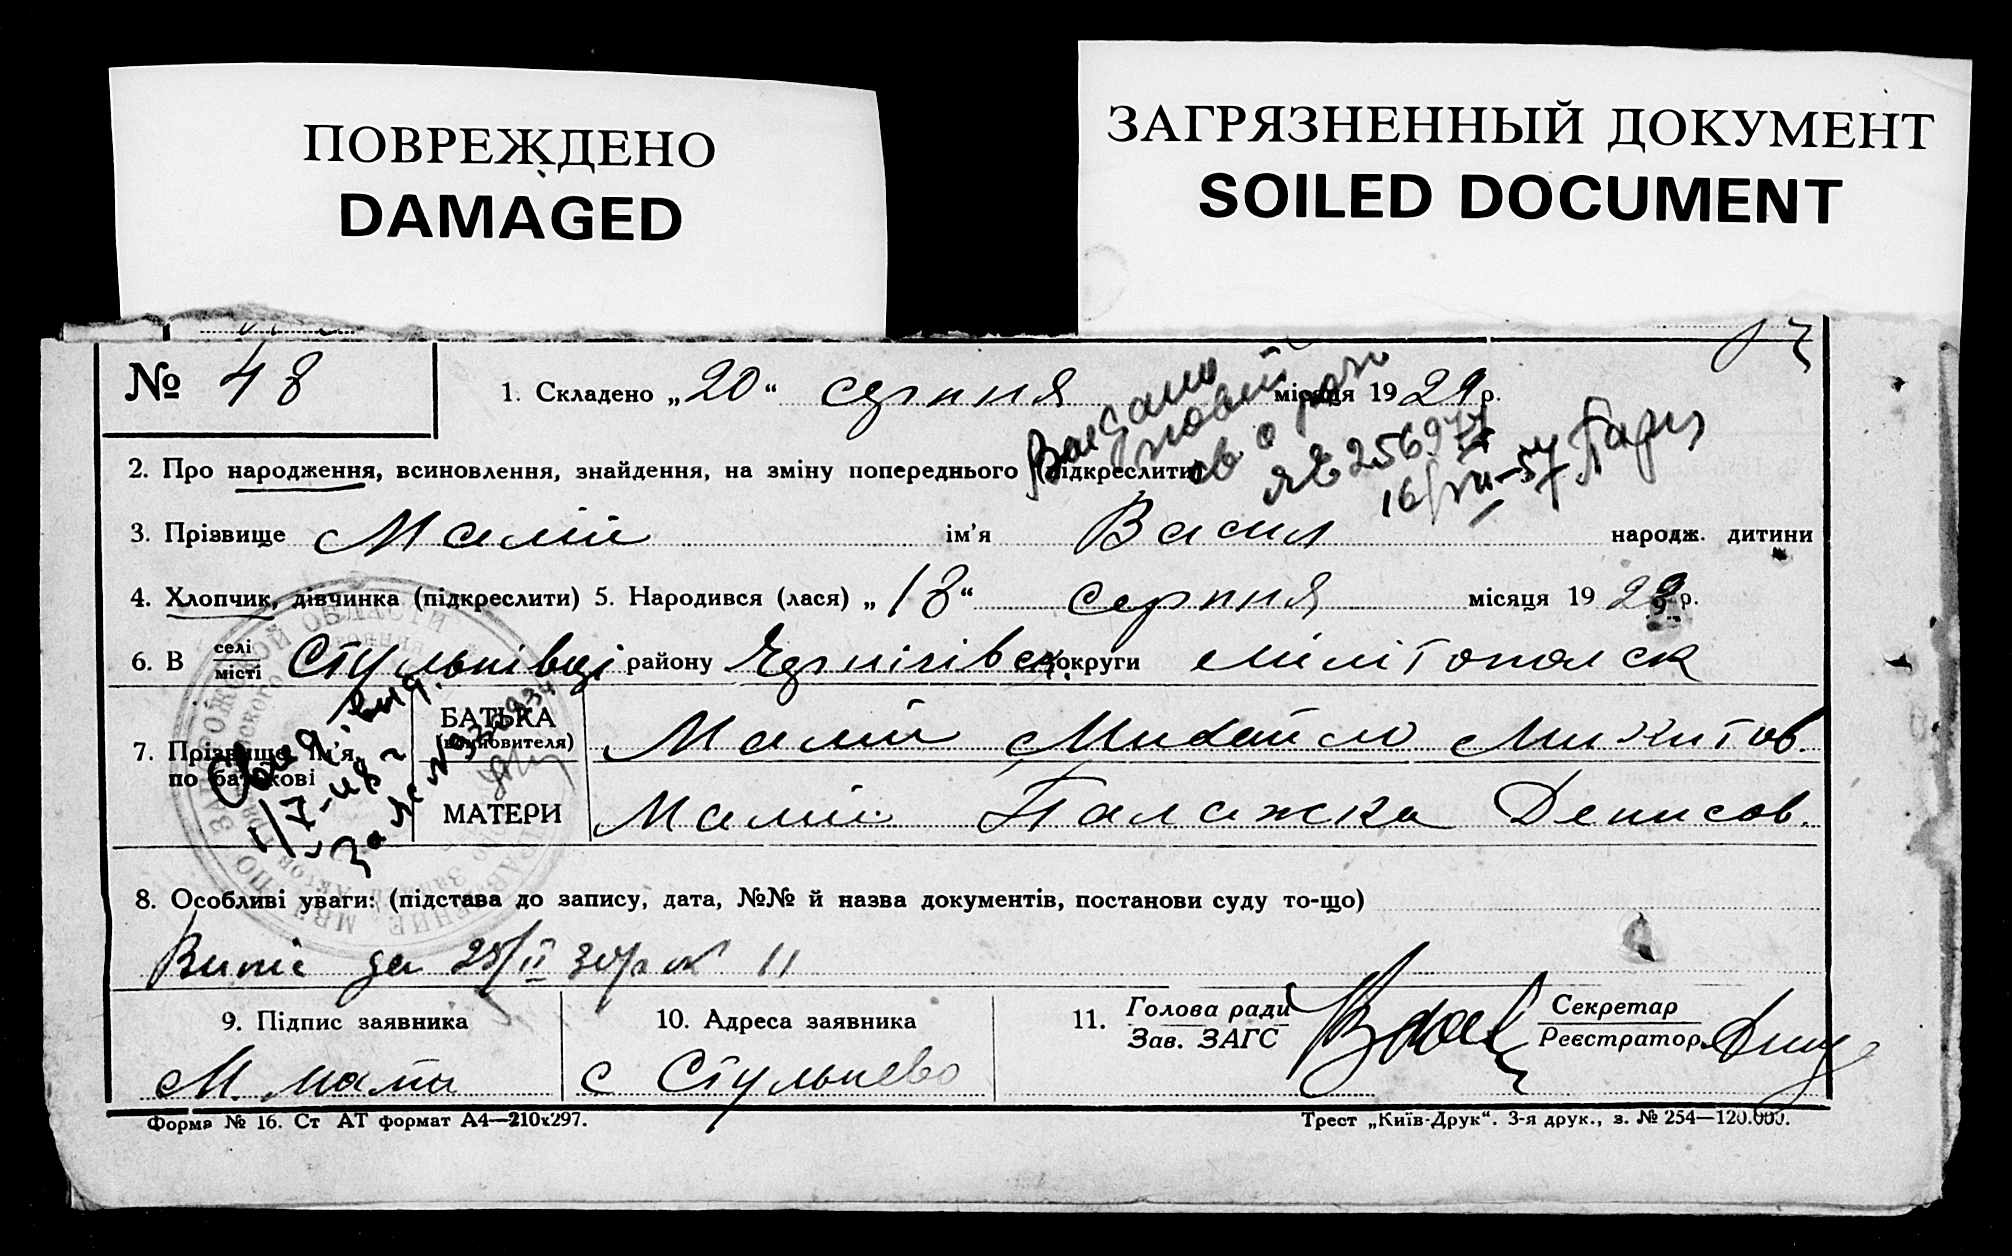 ПОВРЕЖДЕНО
DAMAGED
ЗАГРЯЗНЕННЫЙ ДОКУМЕНТ
SOILED DOCUMENT
№ 48
1. Складено „20“ серпня місяця 1929 р.
2. Про народження, всиновлення, знайдення, на зміну попереднього (підкреслити)
ЯБ 256977
16/VII-57
3. Прізвище Малій ім'я Васил народж. дитини
4. Хлопчик, дівчинка (підкреслити) 5. Народився (лася) „18“ серпня місяця 1929 р.
6. В селі місті Стульнівці району округи Мілітопольск
7. Прізвище, ім'я, по батькові
БАТЬКА (всиновителя) Малій Михайло Микитов.
МАТЕРИ Малій Палажка Денисов.
8. Особливі уваги: (підстава до запису, дата, №№ й назва документів, постанови суду то-що)
Випис да 11
9. Підпис заявника
М. Малій
10. Адреса заявника
с Стульнево
11. Голова ради Зав. ЗАГС
Секретар Реєстратор
Форма № 16. Ст АТ формат А4—210х297.
Трест „Київ-Друк“. 3-я друк., з. № 254—120.000.